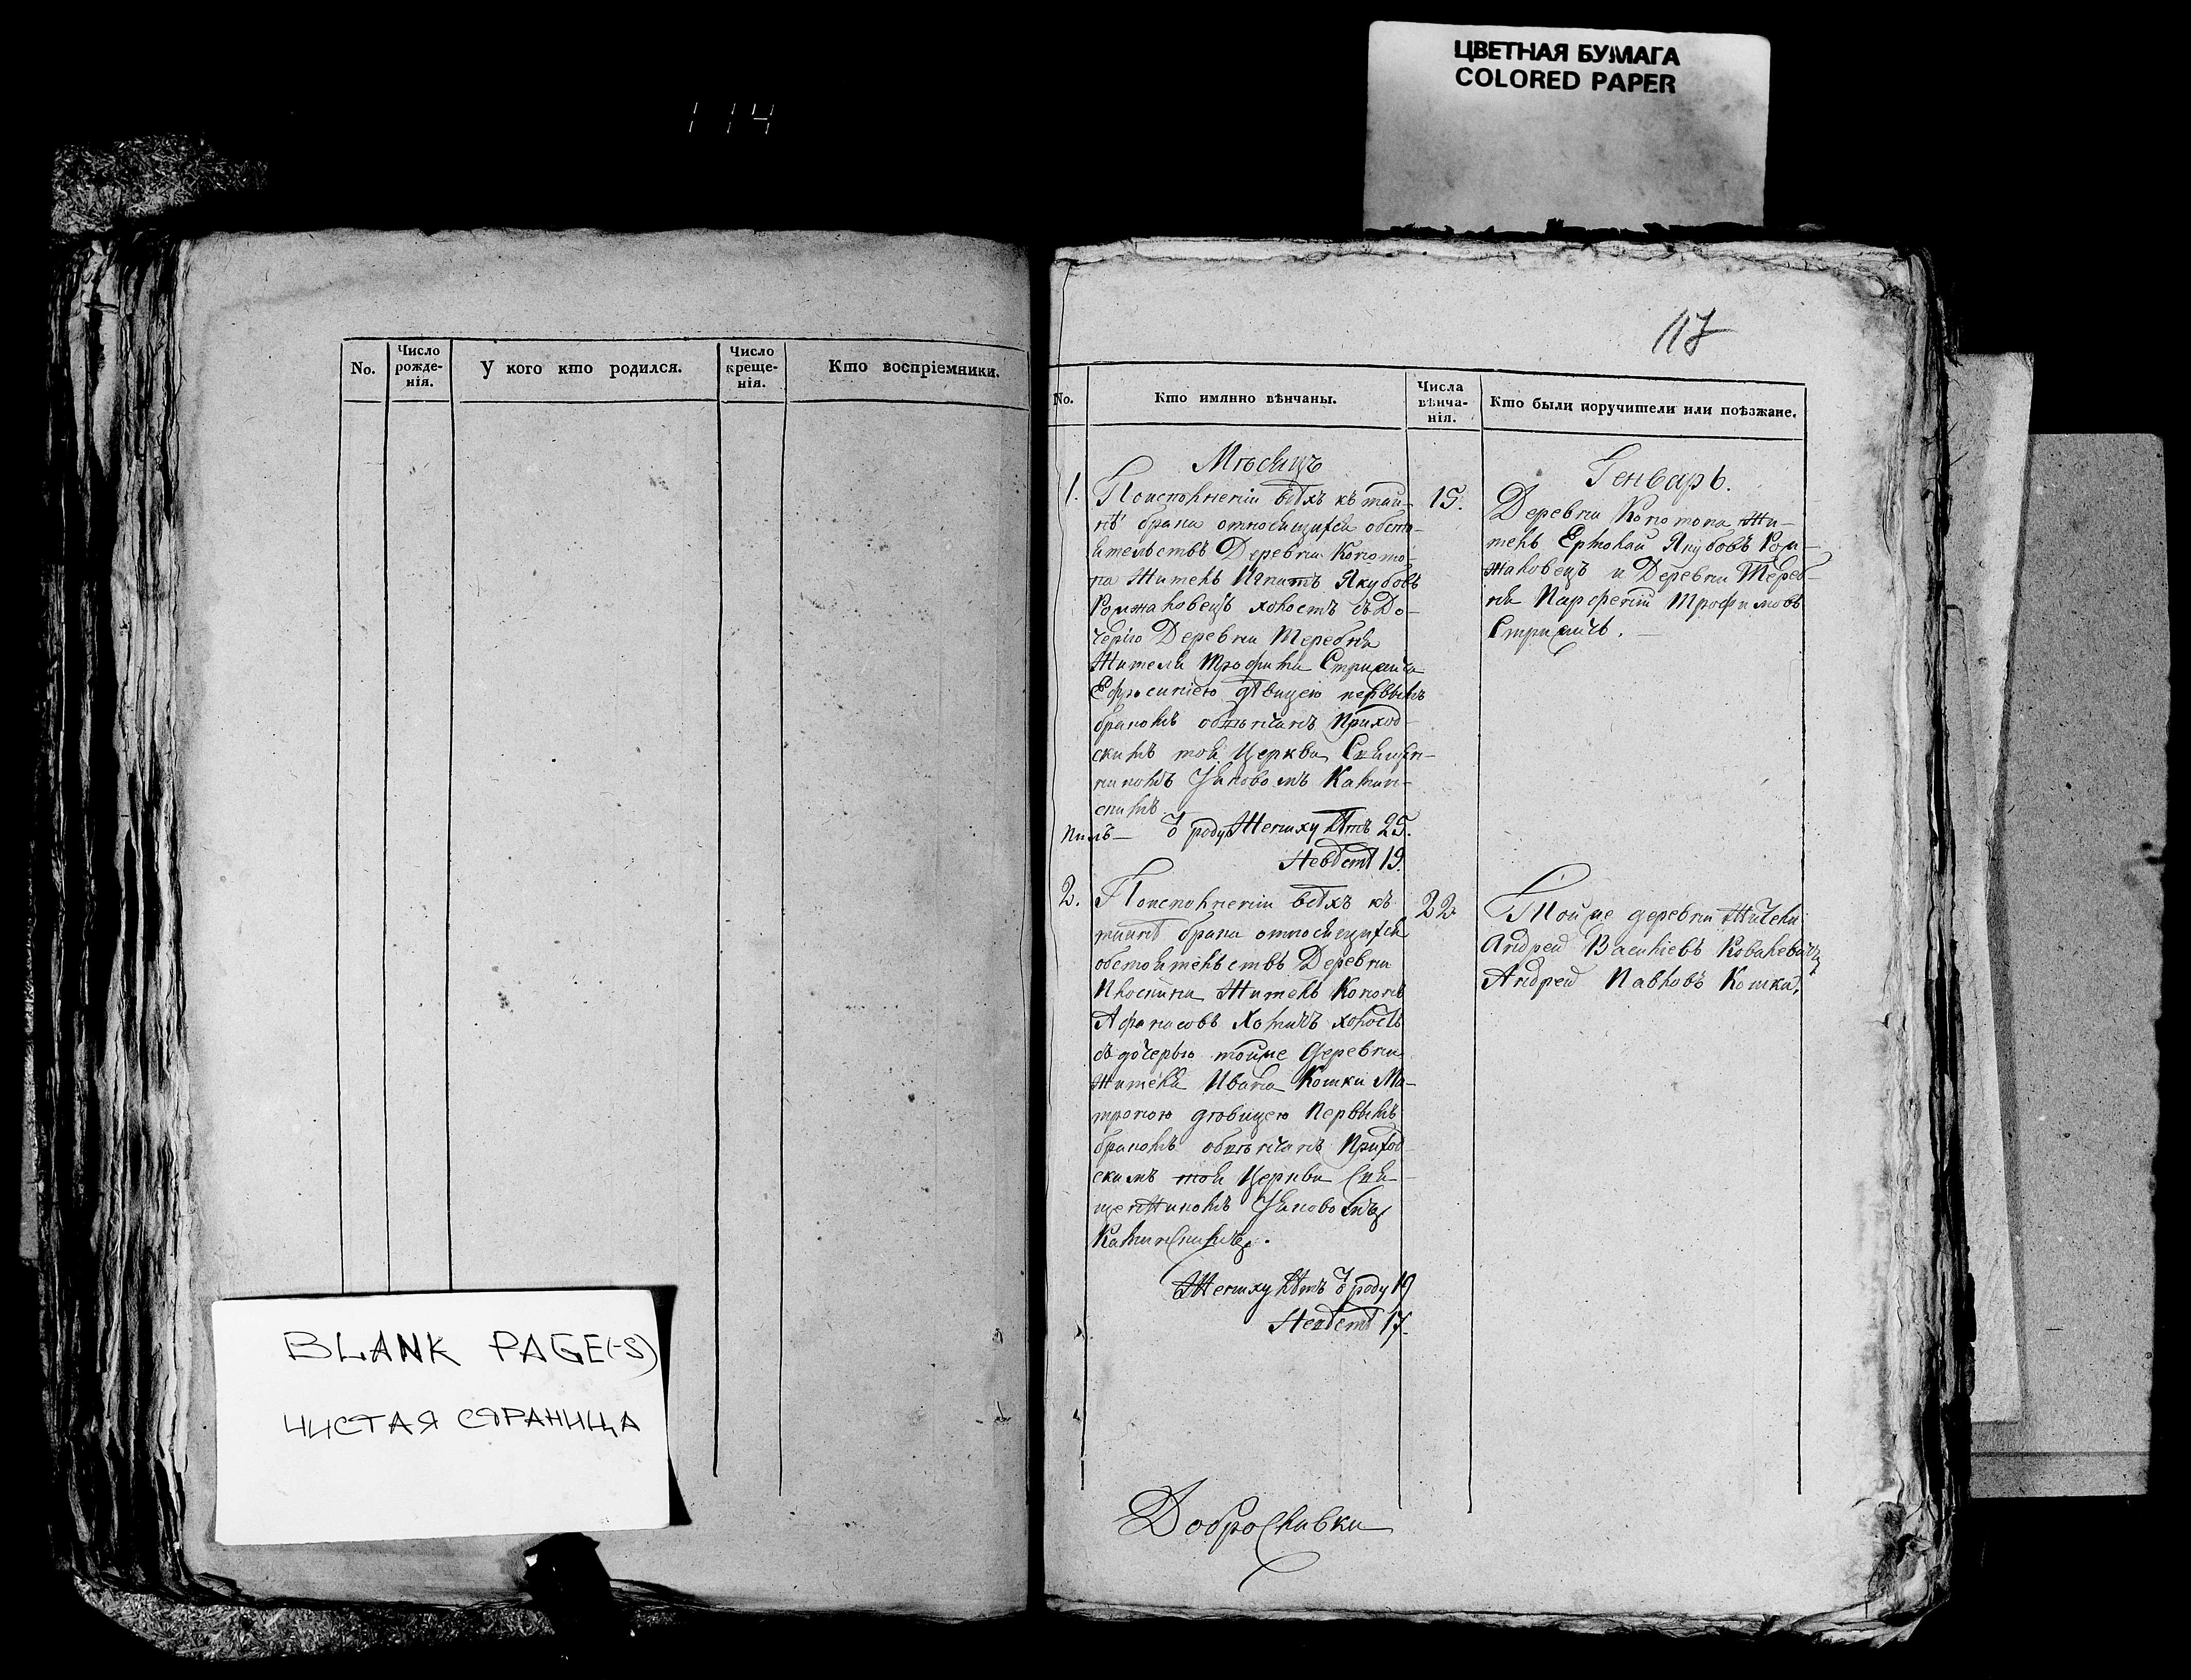 ЦВЕТНАЯ БУМАГА
COLORED PAPER
114
117
No.
Число рожде-нія.
У кого кто родился.
Число креще-нія.
Кто воспріемники.
No.
Кто имянно вѣнчаны.
Числа вѣнча-нія.
Кто были поручители или поѣзжане.
Мѣсяцъ
Генварь.
1.
По исполненіи всѣхъ къ тай-
нѣ брака относящихся обсто-
ятельствъ Деревни
Житель Игнатъ Якубовъ
холостъ съ До-
черію Деревни Теребня
Жителя Трофима
Ефросиніею дѣвицею первымъ
бракомъ обвѣнчанъ Приход-
скимъ той Церкви Священ-
никомъ Іяковомъ Калин-
скимъ
ѿ роду Жениху лѣтъ 25.
Невѣстѣ 19.
15.
Деревни Жи-
тель Ермолай Якубовъ
и Деревни Тереб-
ня Парфеній Трофимовъ
2.
По исполненіи всѣхъ къ
тайнѣ брака относящихся
обстоятельствъ Деревни
Плоскина Житель Кононъ
Афанасовъ холостъ
съ дочерью тойже Деревни
Жителя Ивана Кошки Ма-
троною дѣвицею Первымъ
бракомъ обвѣнчанъ Приход
скимъ той Церкви Свя-
щенникомъ Іяковомъ
Калинскимъ.
Жениху лѣтъ ѿ роду 19
Невѣстѣ 17.
22
Тойже деревни Жители
Андрей Васильевъ Ковалевичъ
Андрей Павловъ Кошка.
Доброславки
BLANK PAGE(-S)
ЧИСТАЯ СТРАНИЦА